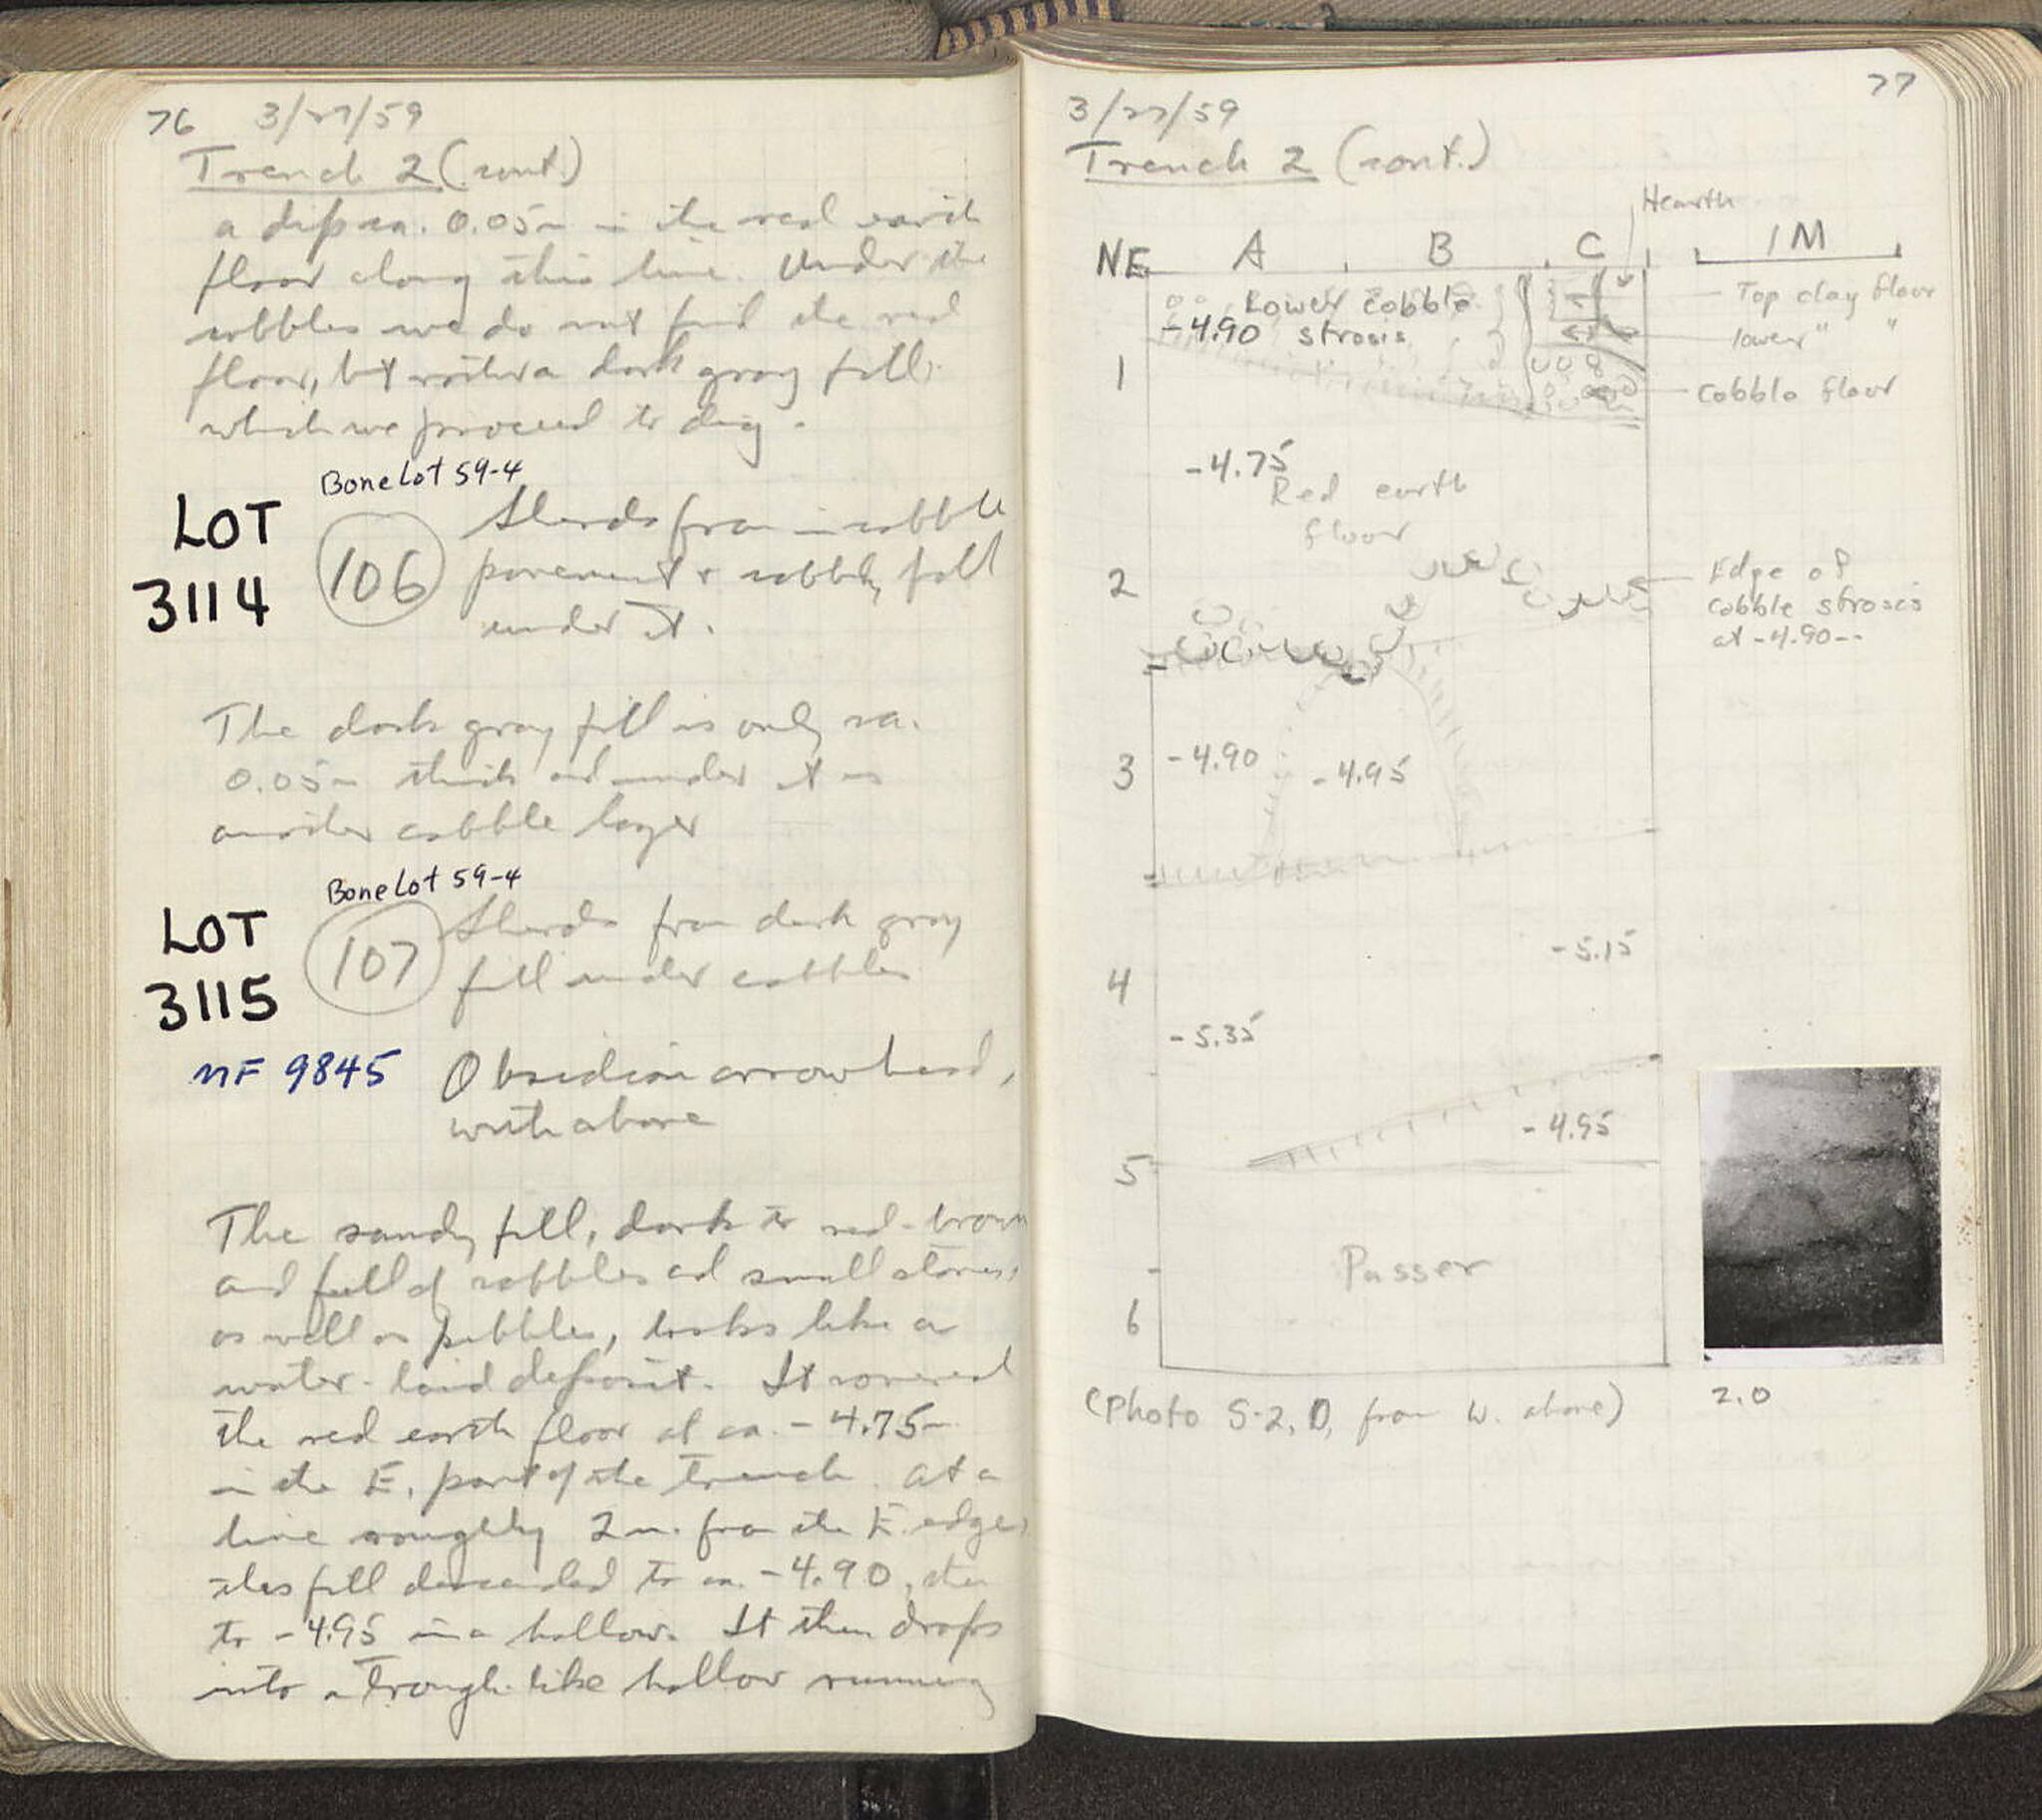 76 3/27/59
Trench 2 (cont.)
a dip ca. 0.05m in the red earth
floor along this line. Under the
cobbles we do not find the red
floor, but rather a dark gray fill,
which we proceed to dig.
Bone Lot 59-4
LOT
3114
106
Sherds from in cobble
pavement & cobbly fill
under it.
The dark gray fill is only ca.
0.05m thick and under it is
another cobble layer
Bone Lot 59-4
LOT
3115
107
Sherds from dark gray
fill under cobbles
NF 9845
Obsidian arrowhead,
with above
The sandy fill, dark to red-brown
and full of cobbles and small stones,
as well as pebbles, looks like a
water-laid deposit. It covered
the red earth floor at ca. -4.75m
in the E. part of the trench. At a
line roughly 2m. from the E. edge
this fill descended to ca. -4.90, then
to -4.95 in a hollow. It then drops
into a trough-like hollow running
77
3/27/59
Trench 2 (cont.)
Hearth
NE A B C 1M
Lower cobble
-4.90 strosis
Top clay floor
lower " "
Cobble floor
1
-4.75
Red earth
floor
2
Edge of
cobble strosis
at -4.90--
3
-4.90
-4.95
-5.15
4
-5.35
-4.95
5
Passer
6
(Photo S-2, D, from W. above)
2.0